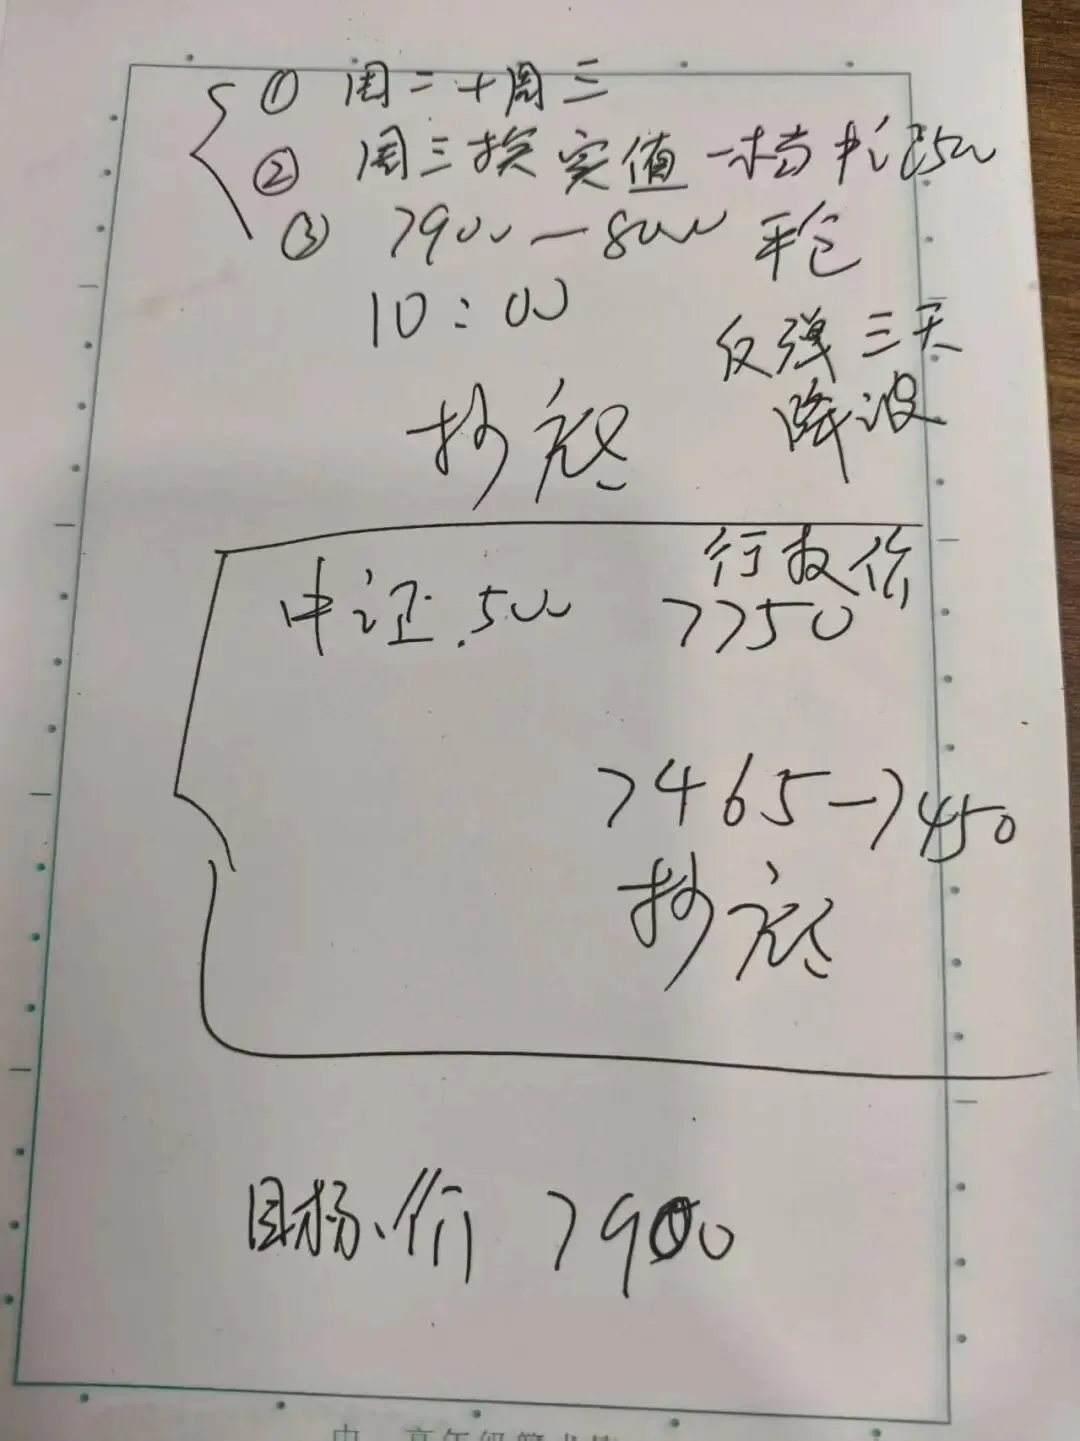 ① 周二十周三
② 周三换实值一档
③ 7900—8000 平仓
10:00
反弹三天
降波
抄底
行权价
中证.500 7750
7465—7450
抄底
目标价 7900